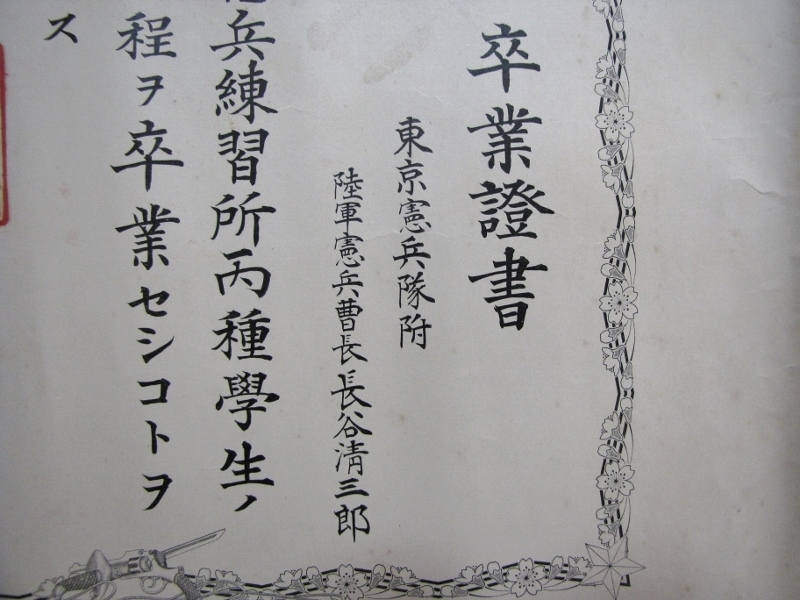 卒業證書
東京憲兵隊附
陸軍憲兵曹長長谷清三郎
兵練習所丙種學生ノ
程ヲ卒業セシコトヲ
ス